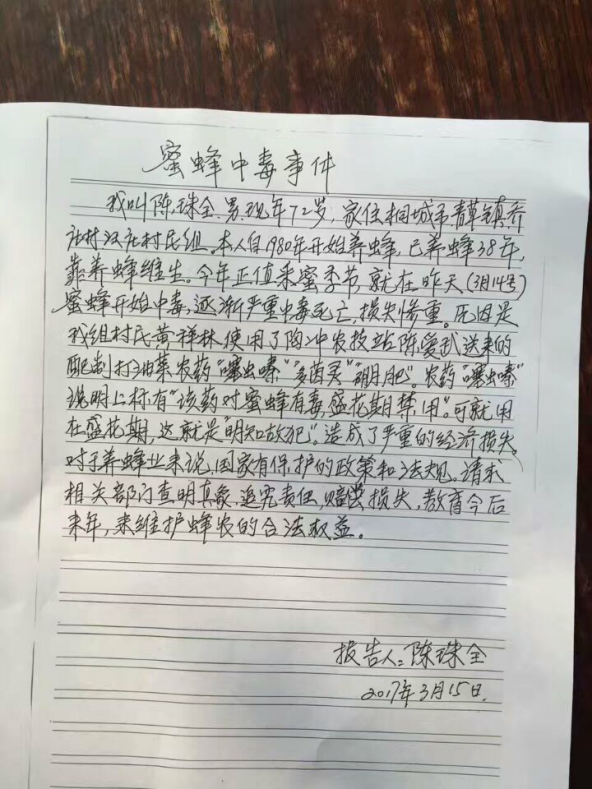 蜜蜂中毒事件
我叫陈珠全,男,现年72岁,家住桐城市青草镇乔
庄村汉庄村民组。本人自1980年开始养蜂,已养蜂38年,
靠养蜂维生。今年正值采蜜季节,就在昨天(3月14号)
蜜蜂开始中毒,逐渐严重中毒死亡,损失惨重。原因是
我组村民黄祥林使用了陶冲农技站陈爱武送来的
配制打油菜农药"噻虫嗪""多菌灵""硼肥"。农药"噻虫嗪"
说明上标有"该药对蜜蜂有毒盛花期禁用"。可就用
在盛花期,这就是"明知故犯"。造成了严重的经济损失。
对于养蜂业来说,国家有保护的政策和法规。请求
相关部门查明真象,追究责任,赔偿损失,教育今后
来年,来维护蜂农的合法权益。
报告人:陈珠全
2017年3月15日.